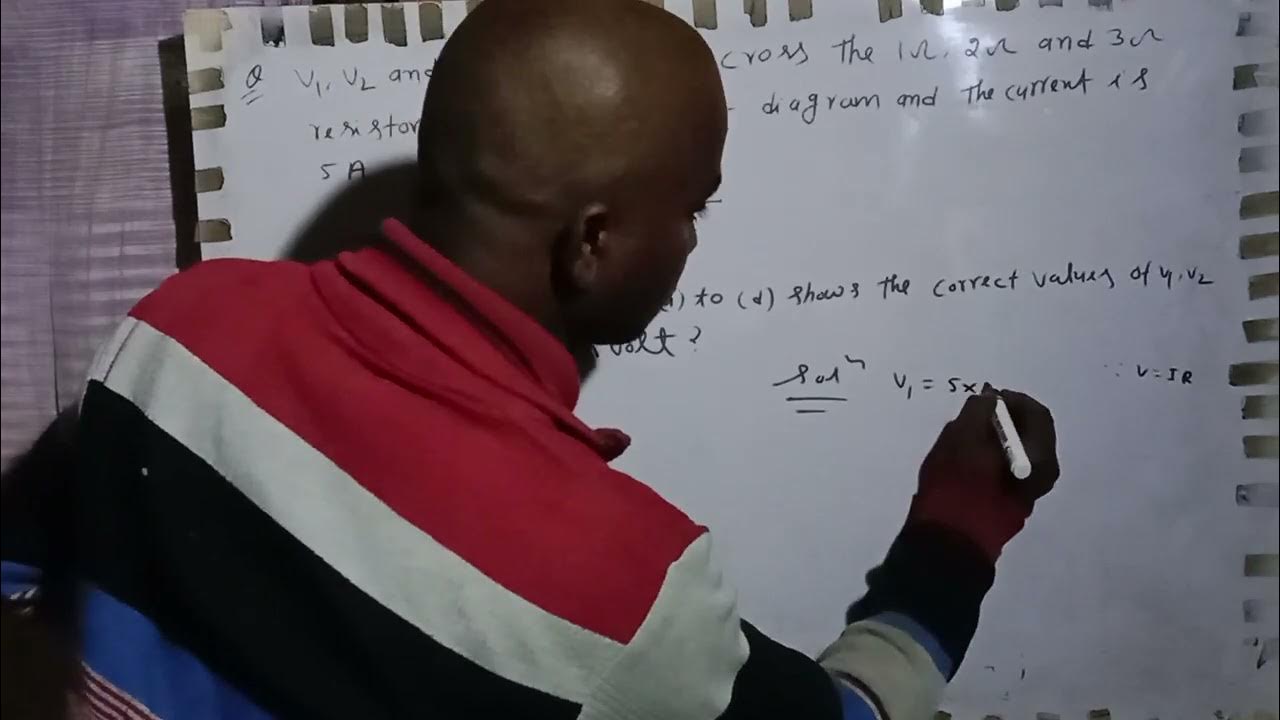 Q V₁, V₂ and cross the 1Ω, 2Ω and 3Ω
resistor diagram and the current is
5 A
to (d) shows the correct values of V₁, V₂
volt ?
Solⁿ V₁ = 5× ∵ V = IR